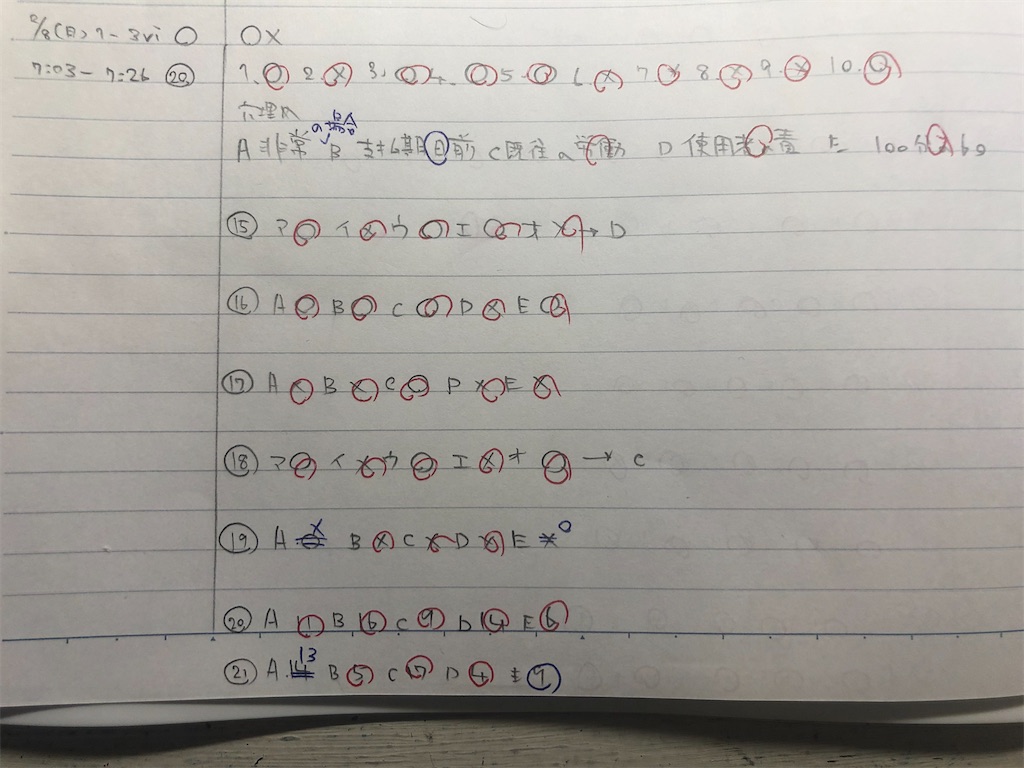 2/8(日) 7-3vi ○ ○×
7:03 – 7:26 ⑳ 1.○ 2.× 3.○ 4.○ 5.○ 6.× 7.× 8.× 9.× 10.○
穴埋め
の場合
A 非常 B 支払期日前 C 既往の労働 D 使用者の責 E 100分の60
⑮ ア○ イ× ウ○ エ○ オ× → D
⑯ A○ B○ C○ D× E○
⑰ A× B× C○ D× E×
⑱ ア○ イ× ウ○ エ× オ○ → C
⑲ A × B× C× D× E ○
⑳ A 1 B 6 C 9 D 14 E 6
㉑ A. 13 B 5 C 7 D 4 E 9